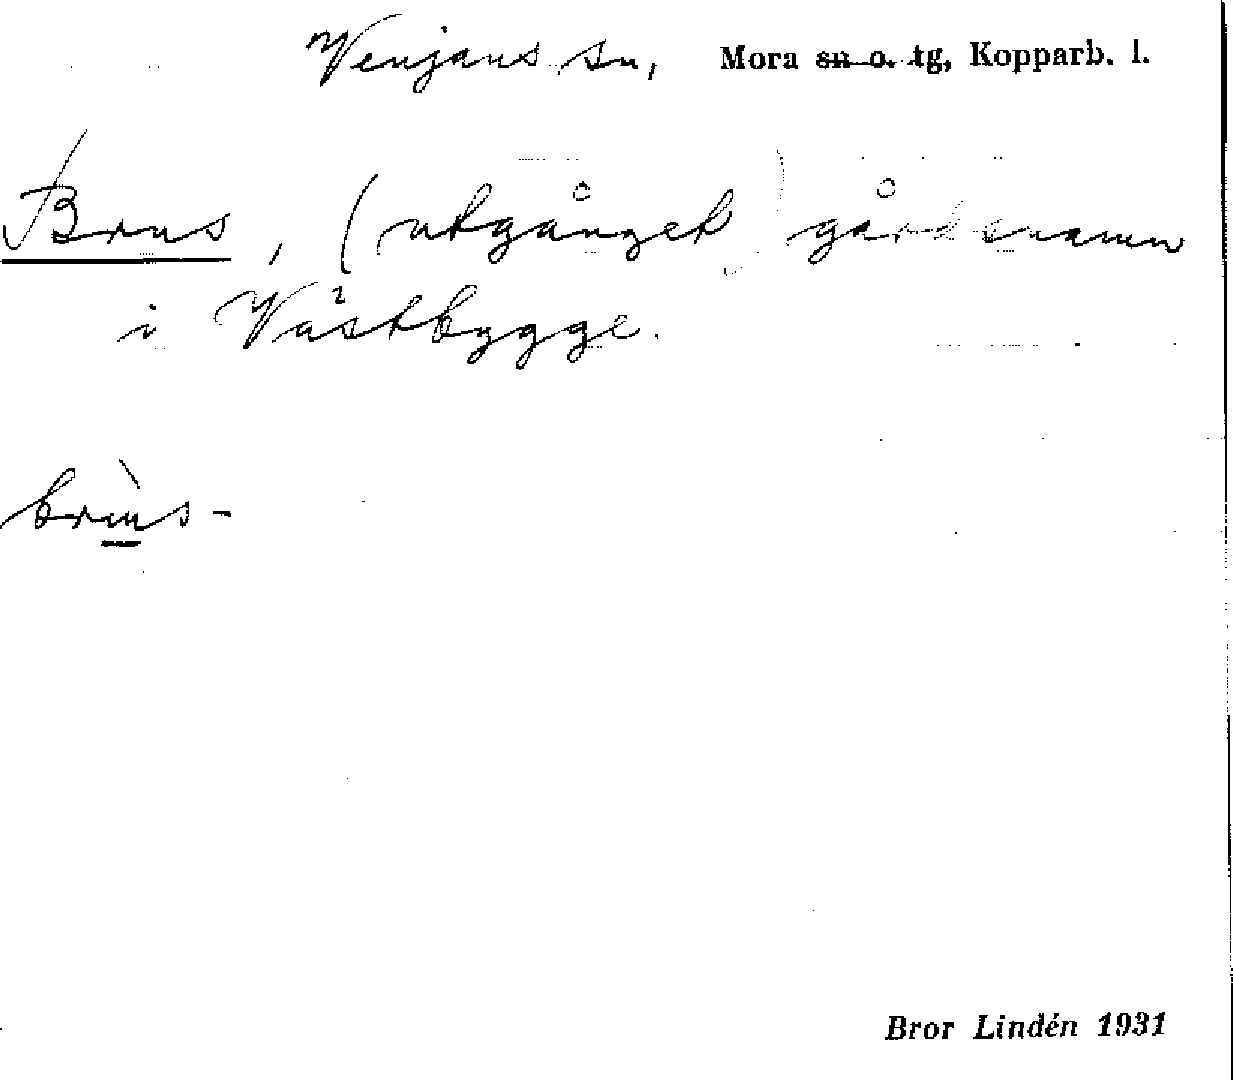 Venjans sn, Mora sn o. tg, Kopparb. l.
Brus, (utgånget) gårdsnamn
i Västbygge.
brùs-
Bror Lindén 1931